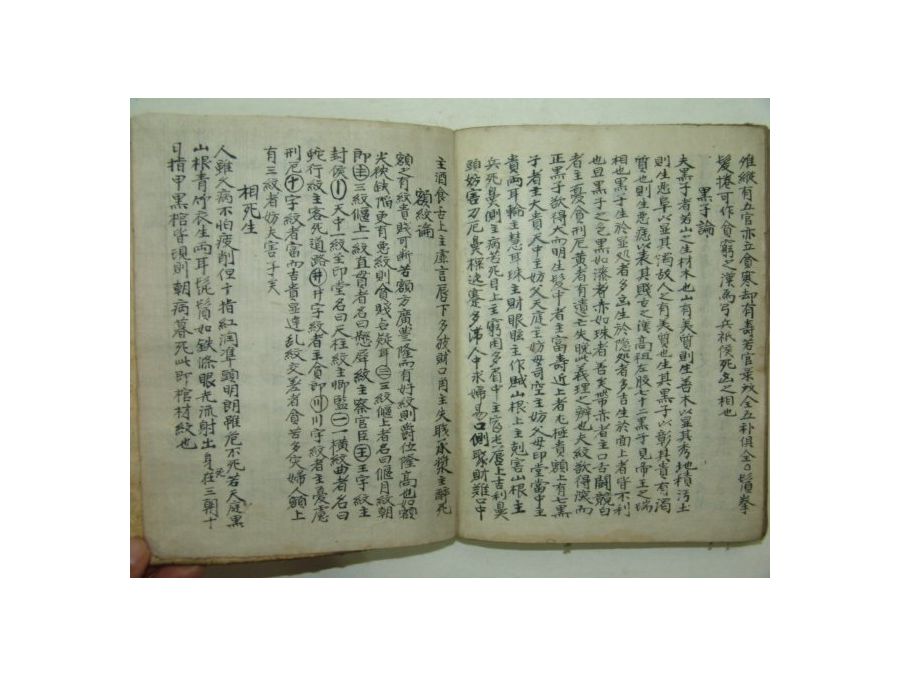 雖縱有五官亦立會寒却有壽若官葉殘全五朴俱全鬚拳
髮捲可作貧窮之漢爲弓兵祇侯死
之相也
黑子論
夫黑子者若山之生材木也山有美質則生善木以顯其秀地積汚土
則生惡阜以顯其濁故人之有美質也生其黑子以彰其貴有濁
質也則生惡痣以表其賤也漢高祖左股七十二黑子見帝王之瑞
相也黑子生於顯処者多凶生於隱処者多吉生於面上者皆不利
也且黑子之色黑如漆者赤如珠者吉夫帶赤者主口舌鬪競白
者主憂貪刑厄黃者有遺亡失脫此義理之辨也夫紋欲得深而
正黑子欲得大而明生髮中者主富壽近上者尤極貴額上有七黑
子者主大貴天中主妨父天庭主妨母司空主妨父母印堂當中主
貴兩耳輪主慧耳珠主財眼眩主作賊山根上主剋害山根主
兵死鼻側主病苦死目上主窮困多眉中主官厄唇上吉利鼻
頭妨害刀厄鼻樑迍蹇多滯人中求婦易口側聚財難心中
主酒食舌上主虛言唇下多破財口角主失職承漿主醉死
額紋論
額之有紋貴賤可斷若額方廣豊隆而有好紋則爵位隆高也如額
尖狹缺陷更有惡紋則貧賤無疑耳㊂三紋偃上者名曰偃月紋朝
郞主三紋偃上一紋直貫者名曰懸犀紋主察官臣王王字紋主
封侯 天中一紋至印堂名曰天柱紋主卿監㊀一橫紋曲者名曰
蛇行紋主客死道路井井字紋者主貪郞川川字紋者主憂慮
刑厄十十字紋者富而吉貴顯違乱紋交差者貪苦多灾婦人額上
有三紋者妨夫害子矣
相死生
人雖大病不怕疲削但十指紅潤準頭明朗雖危不死若天庭黑
山根靑竹衣生兩耳髭鬢如鉄條眼光流射出身在三朝十
死
日指甲黑棺皆現則朝病暮死此卽棺材紋也